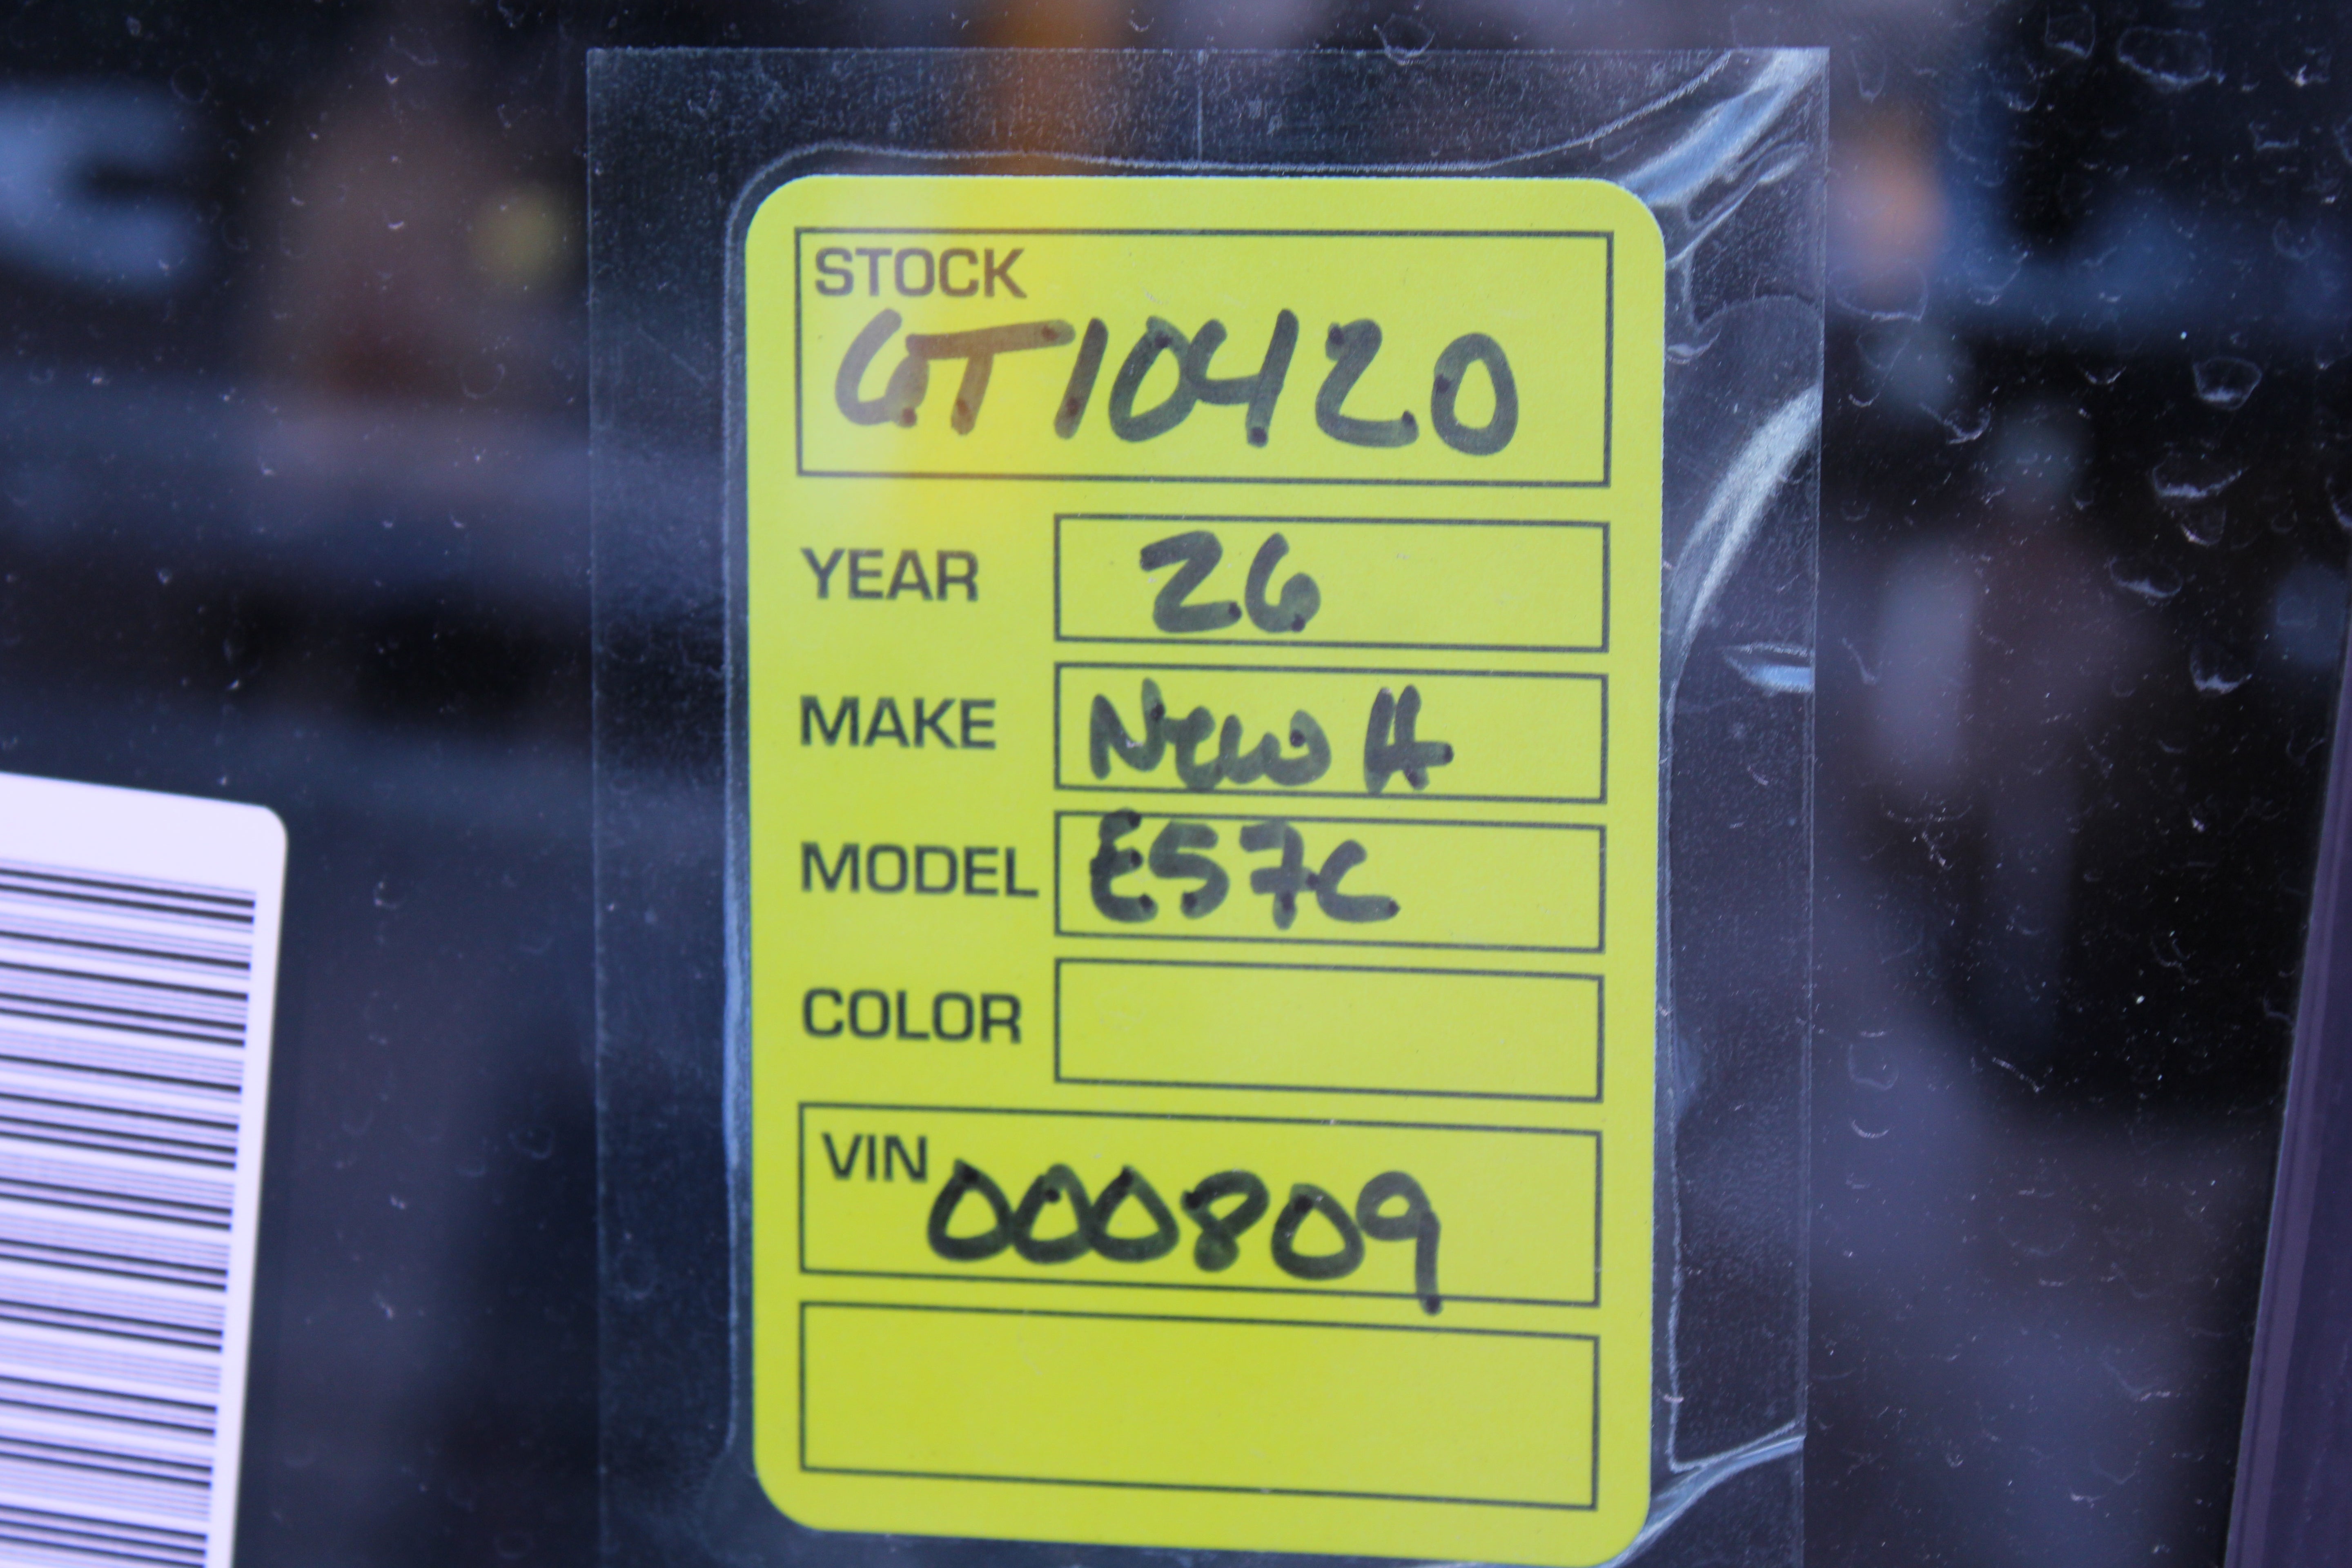 STOCK
GT10420
YEAR 26
MAKE New H
MODEL E57C
COLOR
VIN 000809